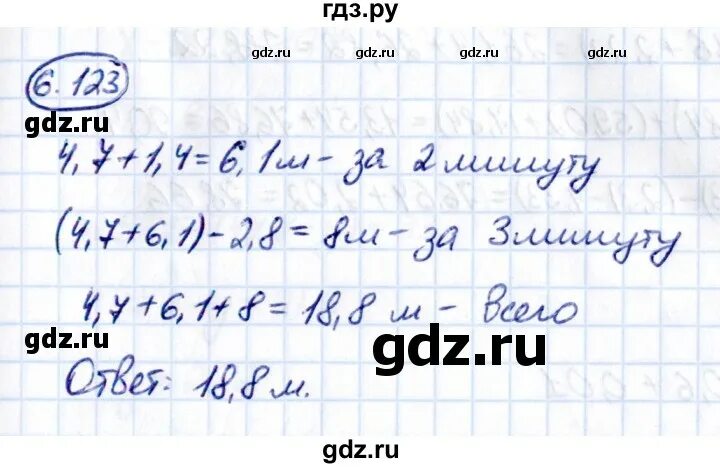 гдз.ру
gdz.ru gdz.ru
6.123
gdz.ru gdz.ru
4,7+1,4=6,1м - за 2 минуту
(4,7+6,1)-2,8=8м - за 3 минуту
4,7+6,1+8=18,8 м - всего
gdz.ru gdz.ru
Ответ: 18,8 м.
gdz.ru